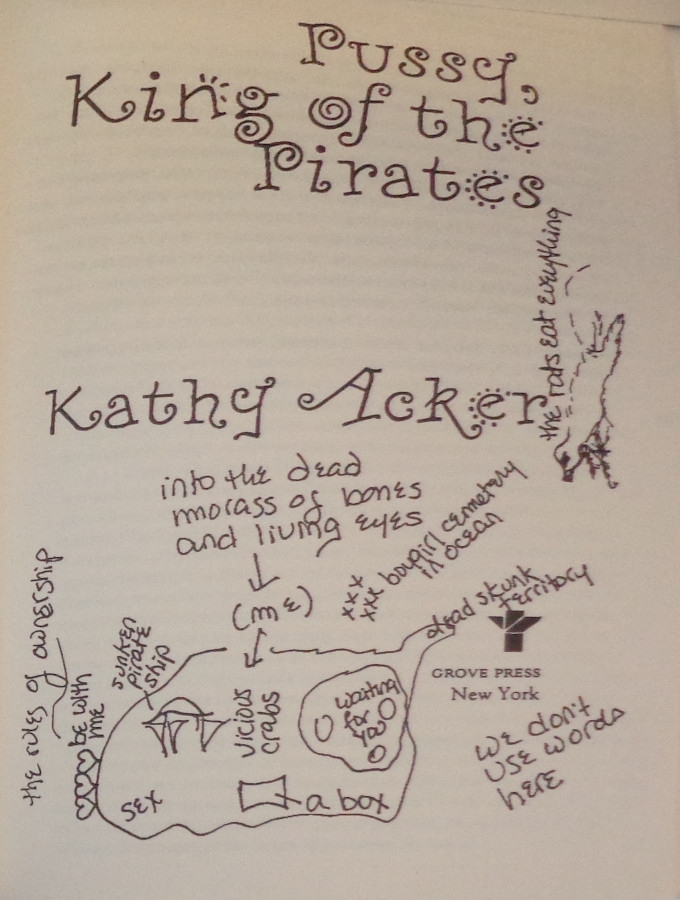 Pussy,
King of the
Pirates
the rats eat everything
Kathy Acker
into the dead
morass of bones
and living eyes
(me)
xxx
xxx boygirl cemetery
in ocean
dead skunk
territory
GROVE PRESS
New York
the rules of ownership
be with
me
sunken
pirate
ship
vicious
crabs
waiting
for
you
sex
a box
we don't
use words
here